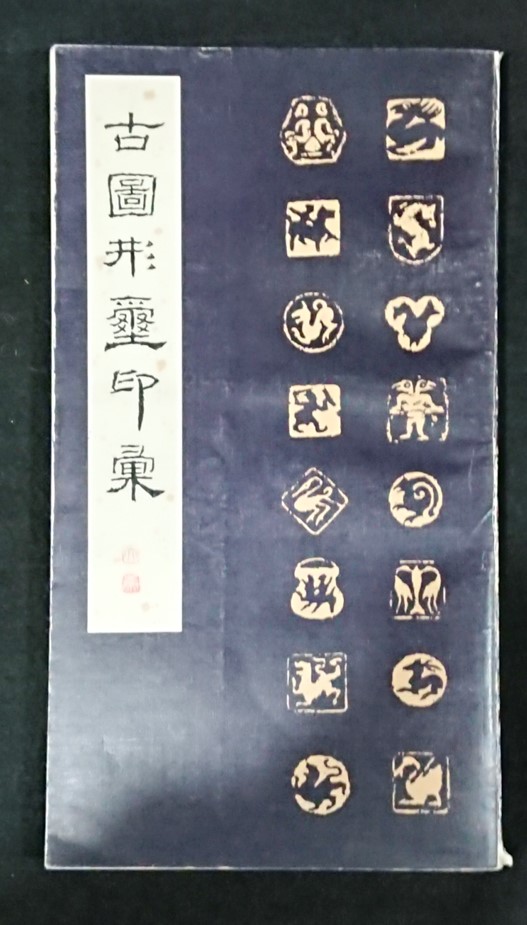 古圖形璽印彙